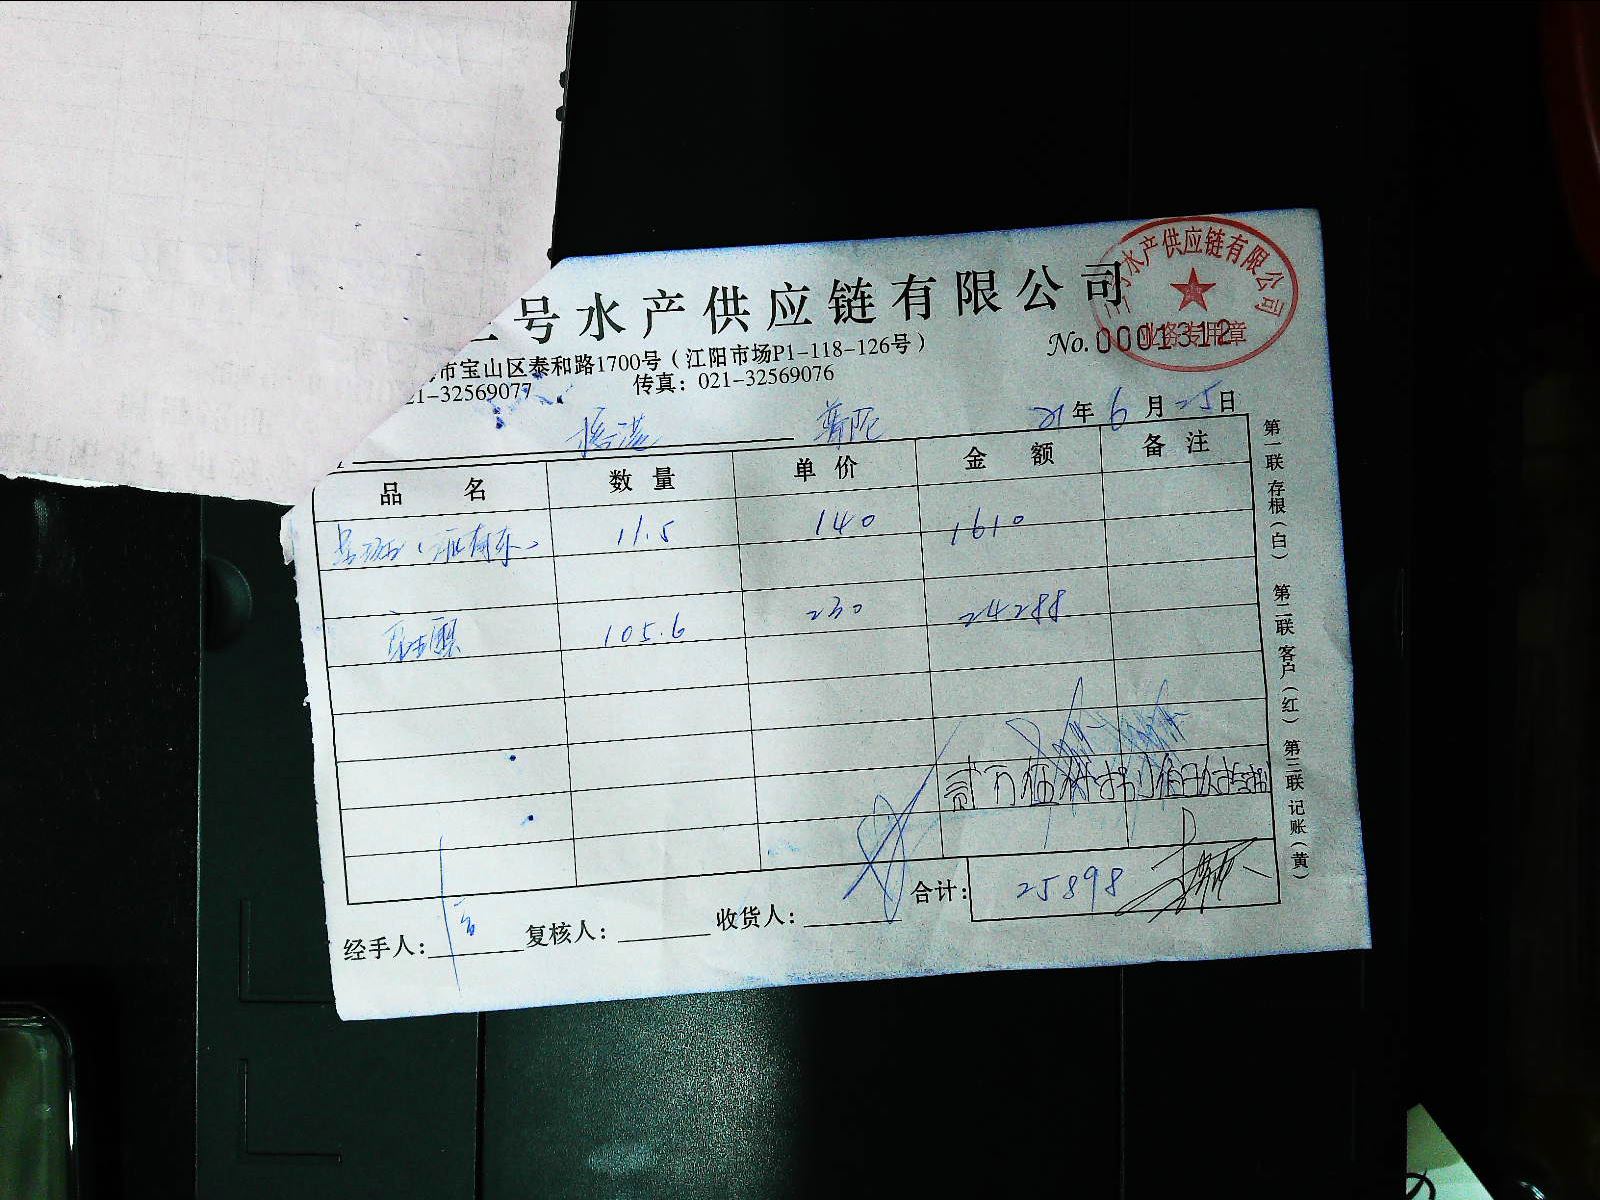 号水产供应链有限公司
水产供应链有限公司
业务专用章
No. 0001312
市宝山区泰和路1700号（江阳市场P1-118-126号）
21-32569077 传真：021-32569076
普陀 21年6月25日
品名 数量 单价 金额 备注
11.5 140 1610
105.6 230 24288
贰万伍仟捌佰玖拾捌
合计： 25898
经手人： 复核人： 收货人：
第一联 存根（白） 第二联 客户（红） 第三联 记账（黄）